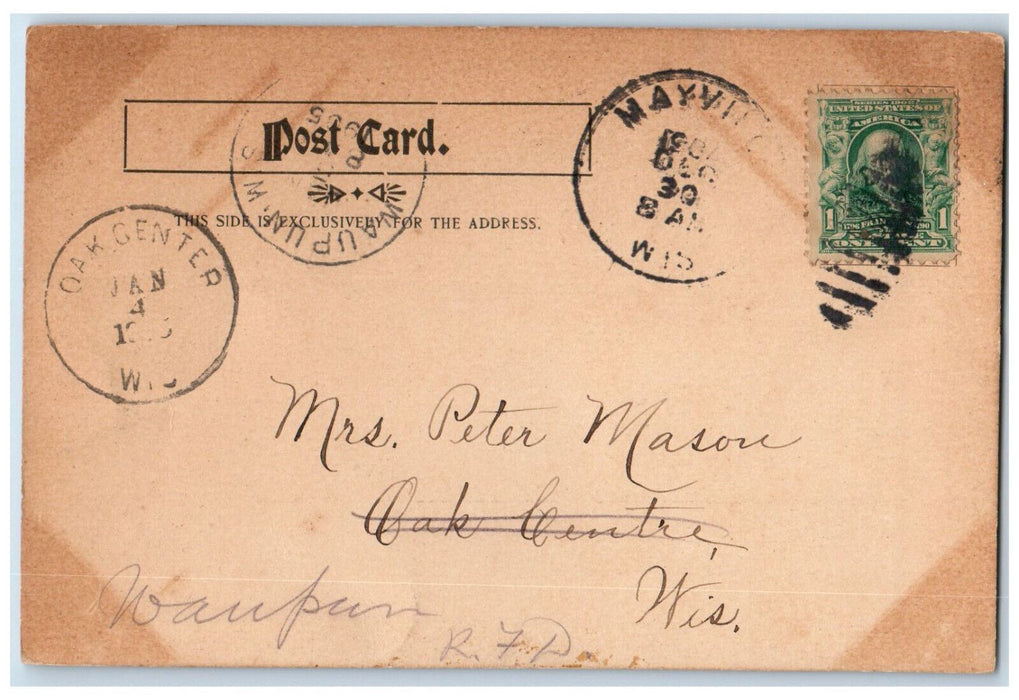 Post Card.
THIS SIDE IS EXCLUSIVELY FOR THE ADDRESS.
WAUPUN, WIS
MAYVIL
DEC
30
8 AM
WIS
SERIES 1902
UNITED STATES OF
AMERICA
1 1
ONE CENT
OAK CENTER
JAN
4
WIS
Mrs. Peter Mason
Oak Centre,
Wis.
Waupun
R.F.D.